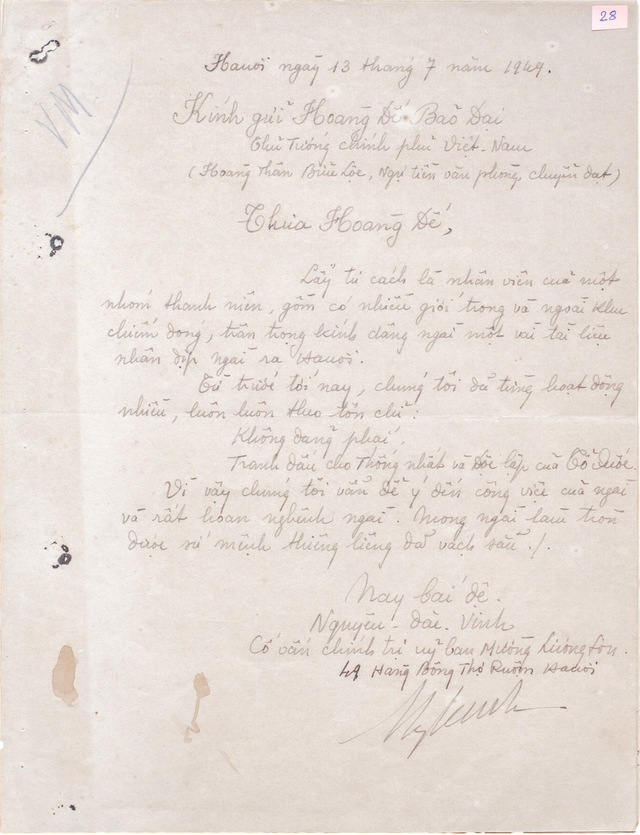 28
VM
Hanoi ngày 13 tháng 7 năm 1949.
Kính gửi Hoàng Đế Bảo Đại
Thủ Tướng chính phủ Việt-Nam
(Hoàng Thân Bửu Lộc, Ngự tiền văn phòng, chuyển đạt)
Thưa Hoàng Đế,
Lấy tư cách là nhân viên của một
nhóm thanh niên, gồm có nhiều giới trong và ngoài khu
chiếm đóng, trân trọng kính dâng ngài một vài tài liệu
nhân dịp ngài ra Hanoi.
Từ trước tới nay, chúng tôi đã từng hoạt động
nhiều, luôn luôn theo tôn chỉ:
Không đảng phái.
Tranh đấu cho Thống nhất và Độc lập của Tổ Quốc.
Vì vậy chúng tôi vẫn để ý đến công việc của ngài
và rất hoan nghênh ngài. Mong ngài làm tròn
được sứ mệnh thiêng liêng đã vạch sẵn./.
Nay bái đệ.
Nguyễn-đắc-Vinh
Cố vấn chính trị uỷ ban Mường Lương Sơn.
Hàng Bông Thợ Ruộm Hanoi